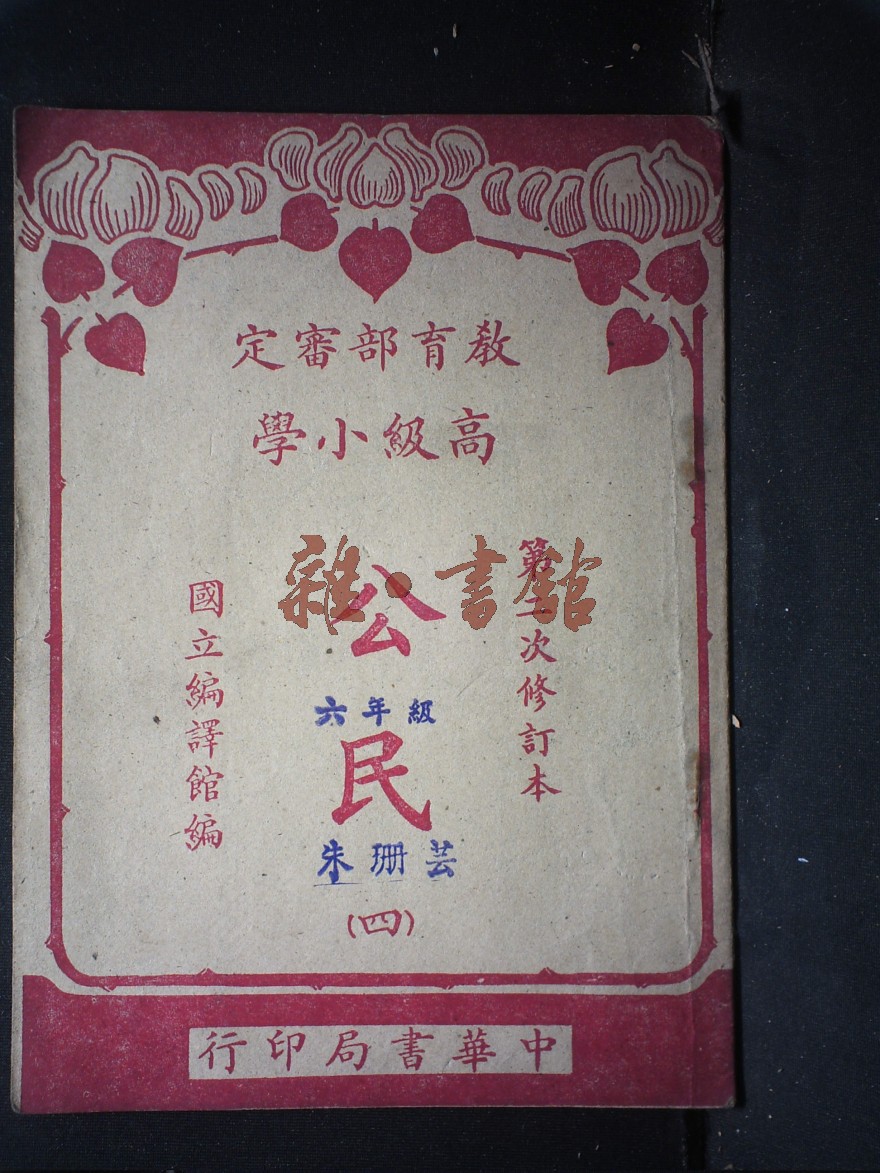 教育部審定
高級小學
第二次修訂本
公民
六年級
朱珊芸
(四)
國立編譯館編
中華書局印行
雜·書館